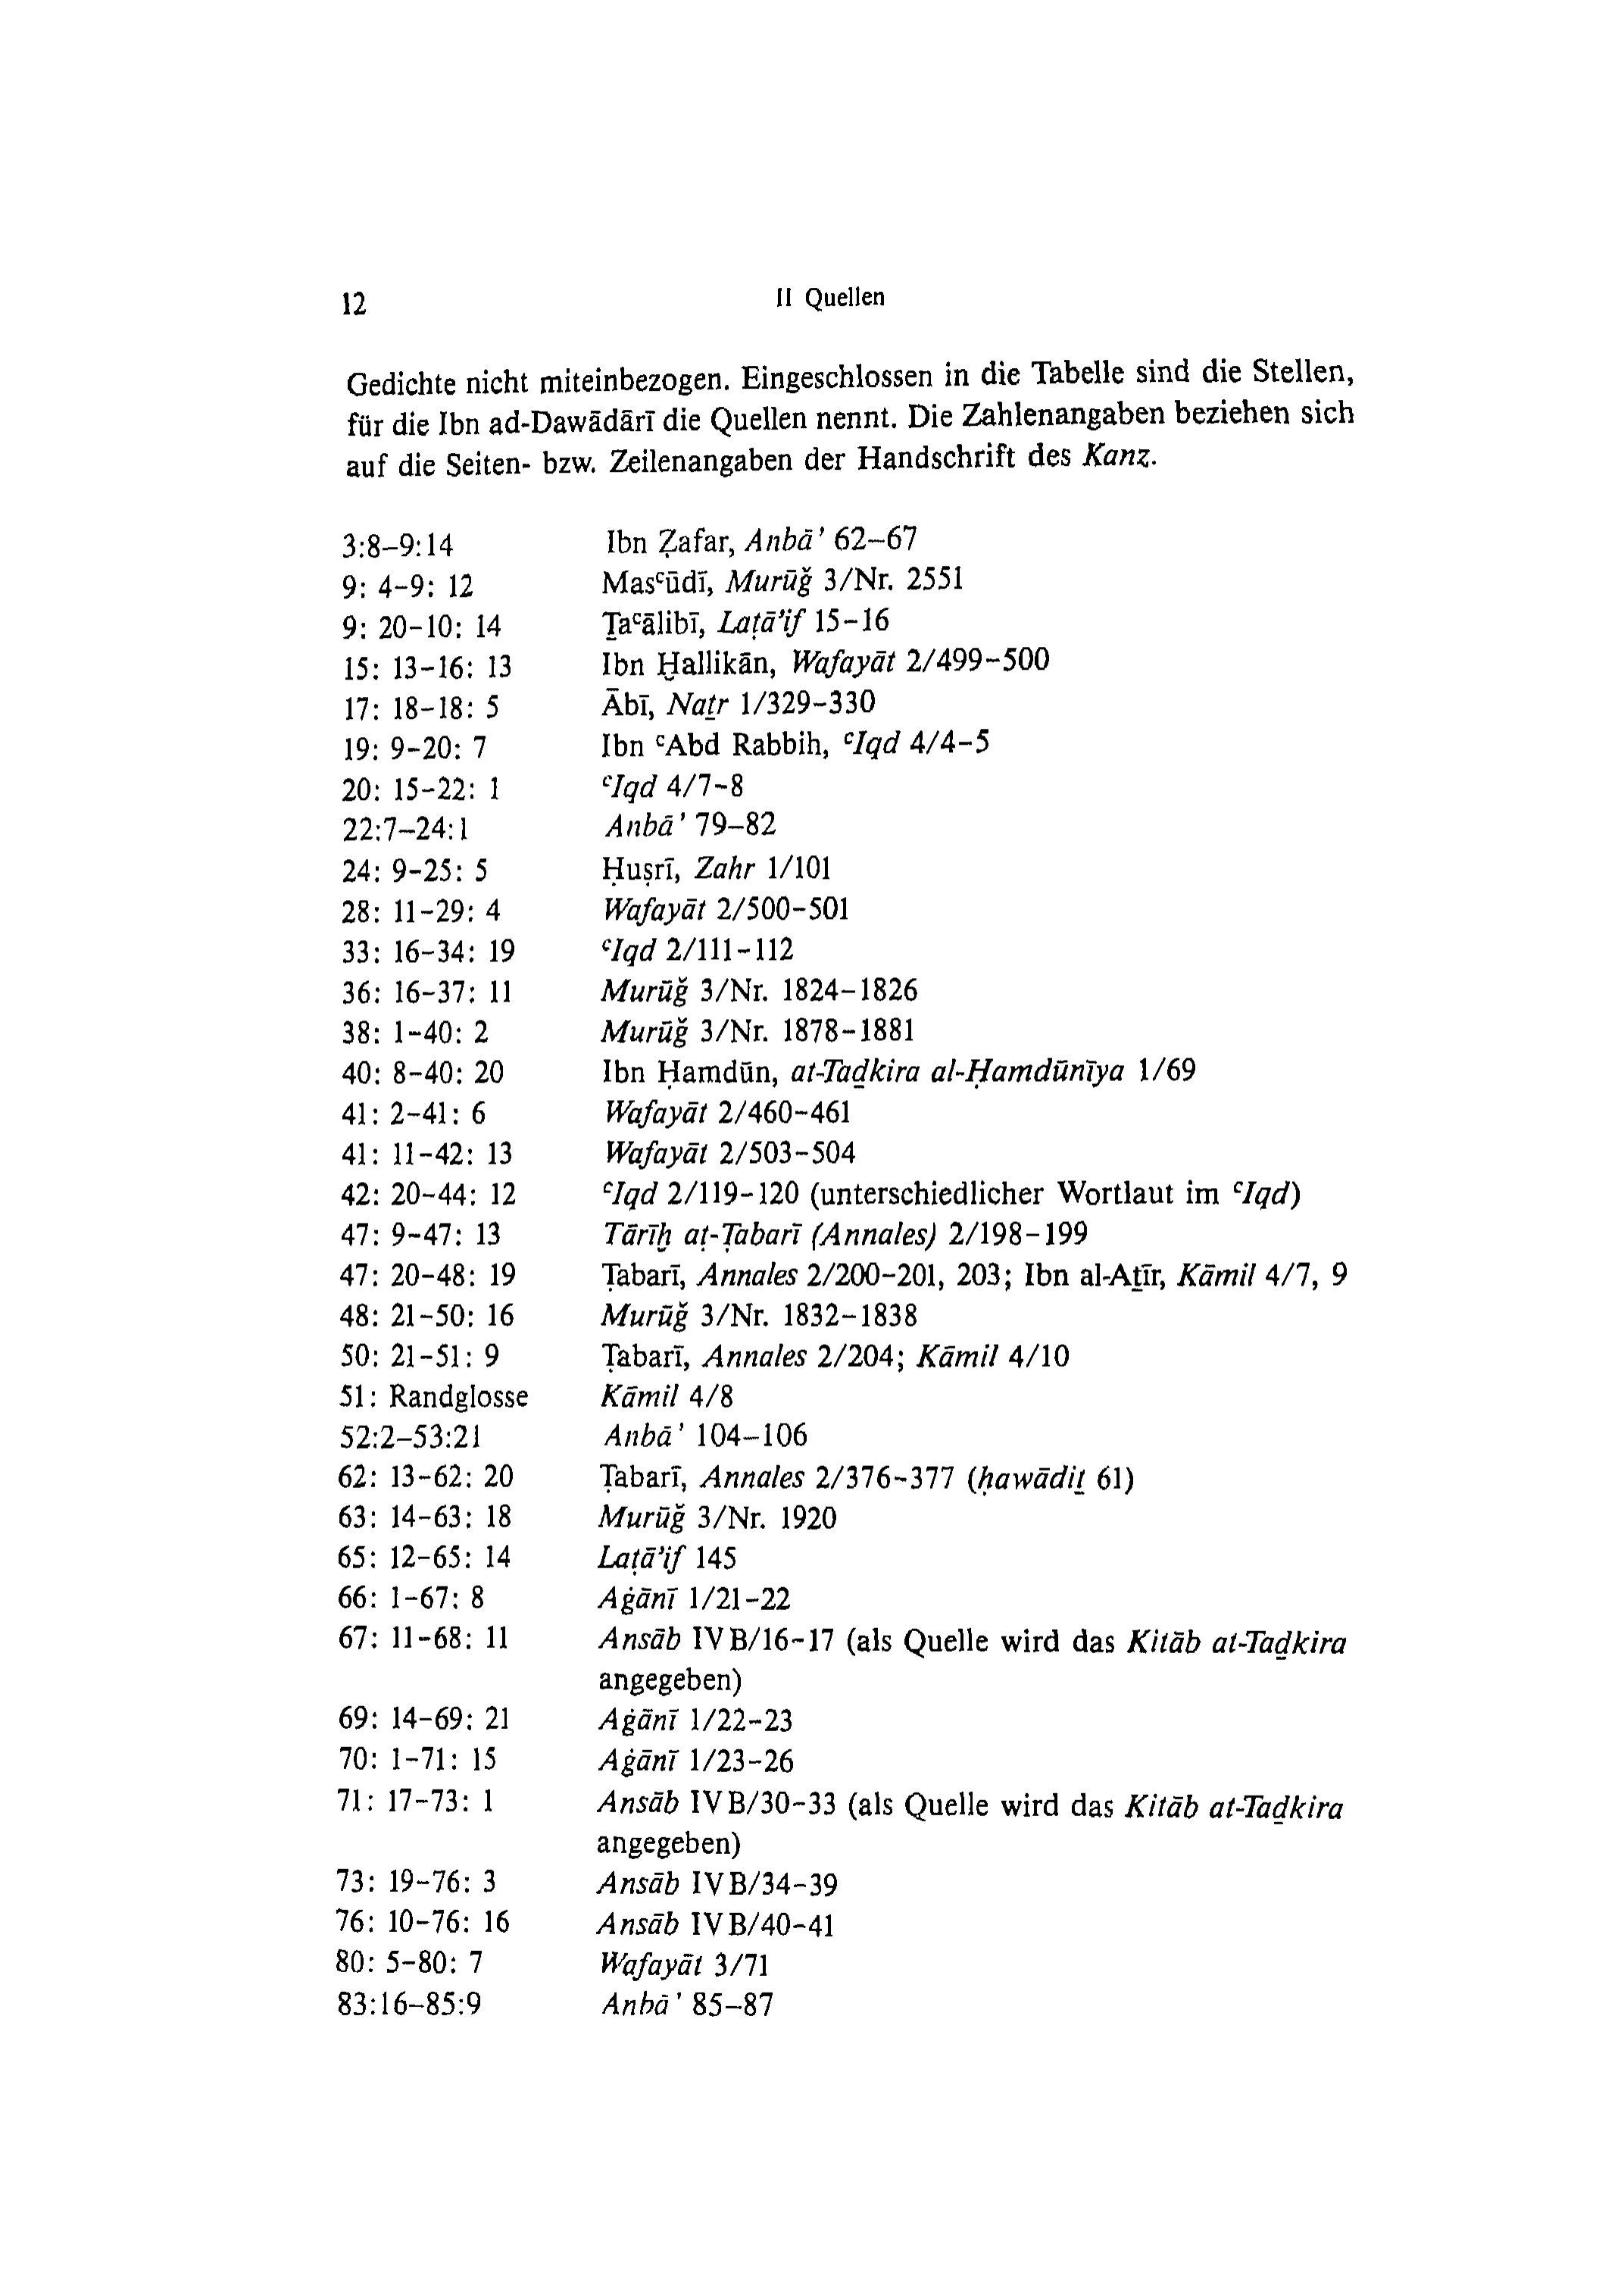 12 II Quellen
Gedichte nicht miteinbezogen. Eingeschlossen in die Tabelle sind die Stellen,
für die Ibn ad-Dawādārī die Quellen nennt. Die Zahlenangaben beziehen sich
auf die Seiten- bzw. Zeilenangaben der Handschrift des Kanz.
3:8–9:14 Ibn Ẓafar, Anbāʾ 62–67
9: 4–9: 12 Masᶜūdī, Murūǧ 3/Nr. 2551
9: 20–10: 14 Ṯaᶜālibī, Laṭā’if 15–16
15: 13–16: 13 Ibn Ḫallikān, Wafayāt 2/499–500
17: 18–18: 5 Ābī, Naṯr 1/329–330
19: 9–20: 7 Ibn ᶜAbd Rabbih, ᶜIqd 4/4–5
20: 15–22: 1 ᶜIqd 4/7–8
22:7–24:1 Anbāʾ 79–82
24: 9–25: 5 Ḥuṣrī, Zahr 1/101
28: 11–29: 4 Wafayāt 2/500–501
33: 16–34: 19 ᶜIqd 2/111–112
36: 16–37: 11 Murūǧ 3/Nr. 1824–1826
38: 1–40: 2 Murūǧ 3/Nr. 1878–1881
40: 8–40: 20 Ibn Ḥamdūn, at-Taḏkira al-Ḥamdūnīya 1/69
41: 2–41: 6 Wafayāt 2/460–461
41: 11–42: 13 Wafayāt 2/503–504
42: 20–44: 12 ᶜIqd 2/119–120 (unterschiedlicher Wortlaut im ᶜIqd)
47: 9–47: 13 Tārīḫ aṭ-Ṭabarī (Annales) 2/198–199
47: 20–48: 19 Ṭabarī, Annales 2/200–201, 203; Ibn al-Aṯīr, Kāmil 4/7, 9
48: 21–50: 16 Murūǧ 3/Nr. 1832–1838
50: 21–51: 9 Ṭabarī, Annales 2/204; Kāmil 4/10
51: Randglosse Kāmil 4/8
52:2–53:21 Anbāʾ 104–106
62: 13–62: 20 Ṭabarī, Annales 2/376–377 (ḥawādiṯ 61)
63: 14–63: 18 Murūǧ 3/Nr. 1920
65: 12–65: 14 Laṭā’if 145
66: 1–67: 8 Aġānī 1/21–22
67: 11–68: 11 Ansāb IV B/16–17 (als Quelle wird das Kitāb at-Taḏkira
angegeben)
69: 14–69: 21 Aġānī 1/22–23
70: 1–71: 15 Aġānī 1/23–26
71: 17–73: 1 Ansāb IV B/30–33 (als Quelle wird das Kitāb at-Taḏkira
angegeben)
73: 19–76: 3 Ansāb IV B/34–39
76: 10–76: 16 Ansāb IV B/40–41
80: 5–80: 7 Wafayāt 3/71
83:16–85:9 Anbāʾ 85–87